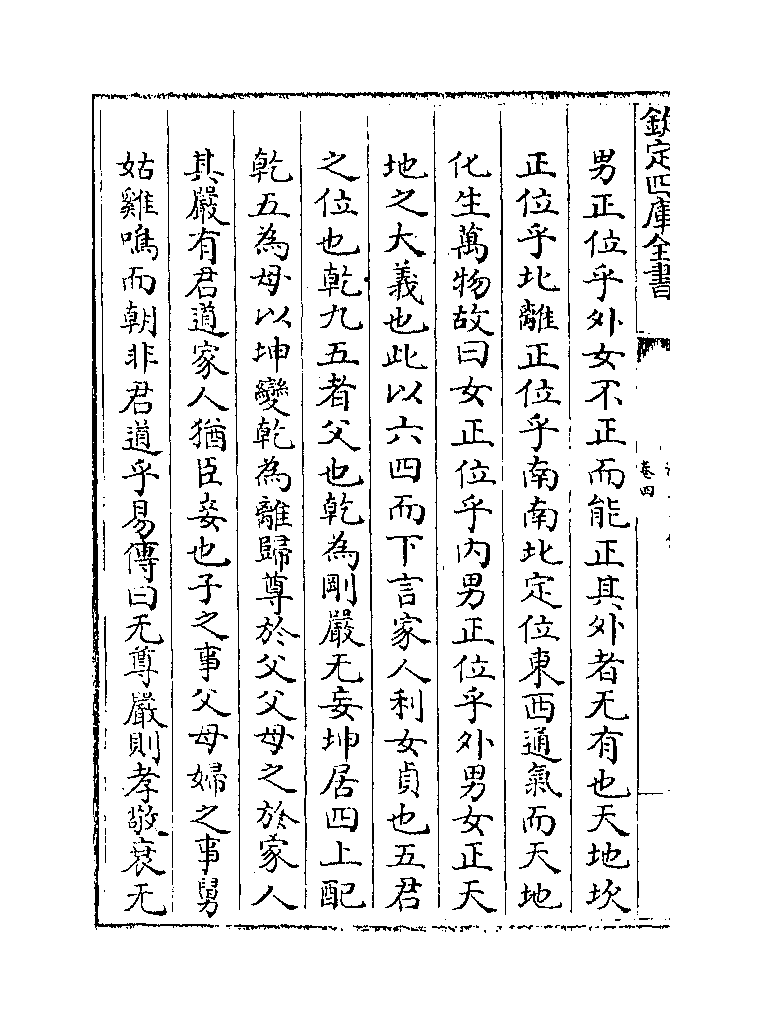 欽定四庫全書
卷四
男正位乎外女不正而能正其外者无有也天地坎
正位乎北離正位乎南南北定位東西通氣而天地
化生萬物故曰女正位乎内男正位乎外男女正天
地之大義也此以六四而下言家人利女貞也五君
之位也乾九五者父也乾為剛嚴无妄坤居四上配
乾五為母以坤變乾為離歸尊於父父母之於家人
其嚴有君道家人猶臣妾也子之事父母婦之事舅
姑雞鳴而朝非君道乎易傳曰无尊嚴則孝敬衰无